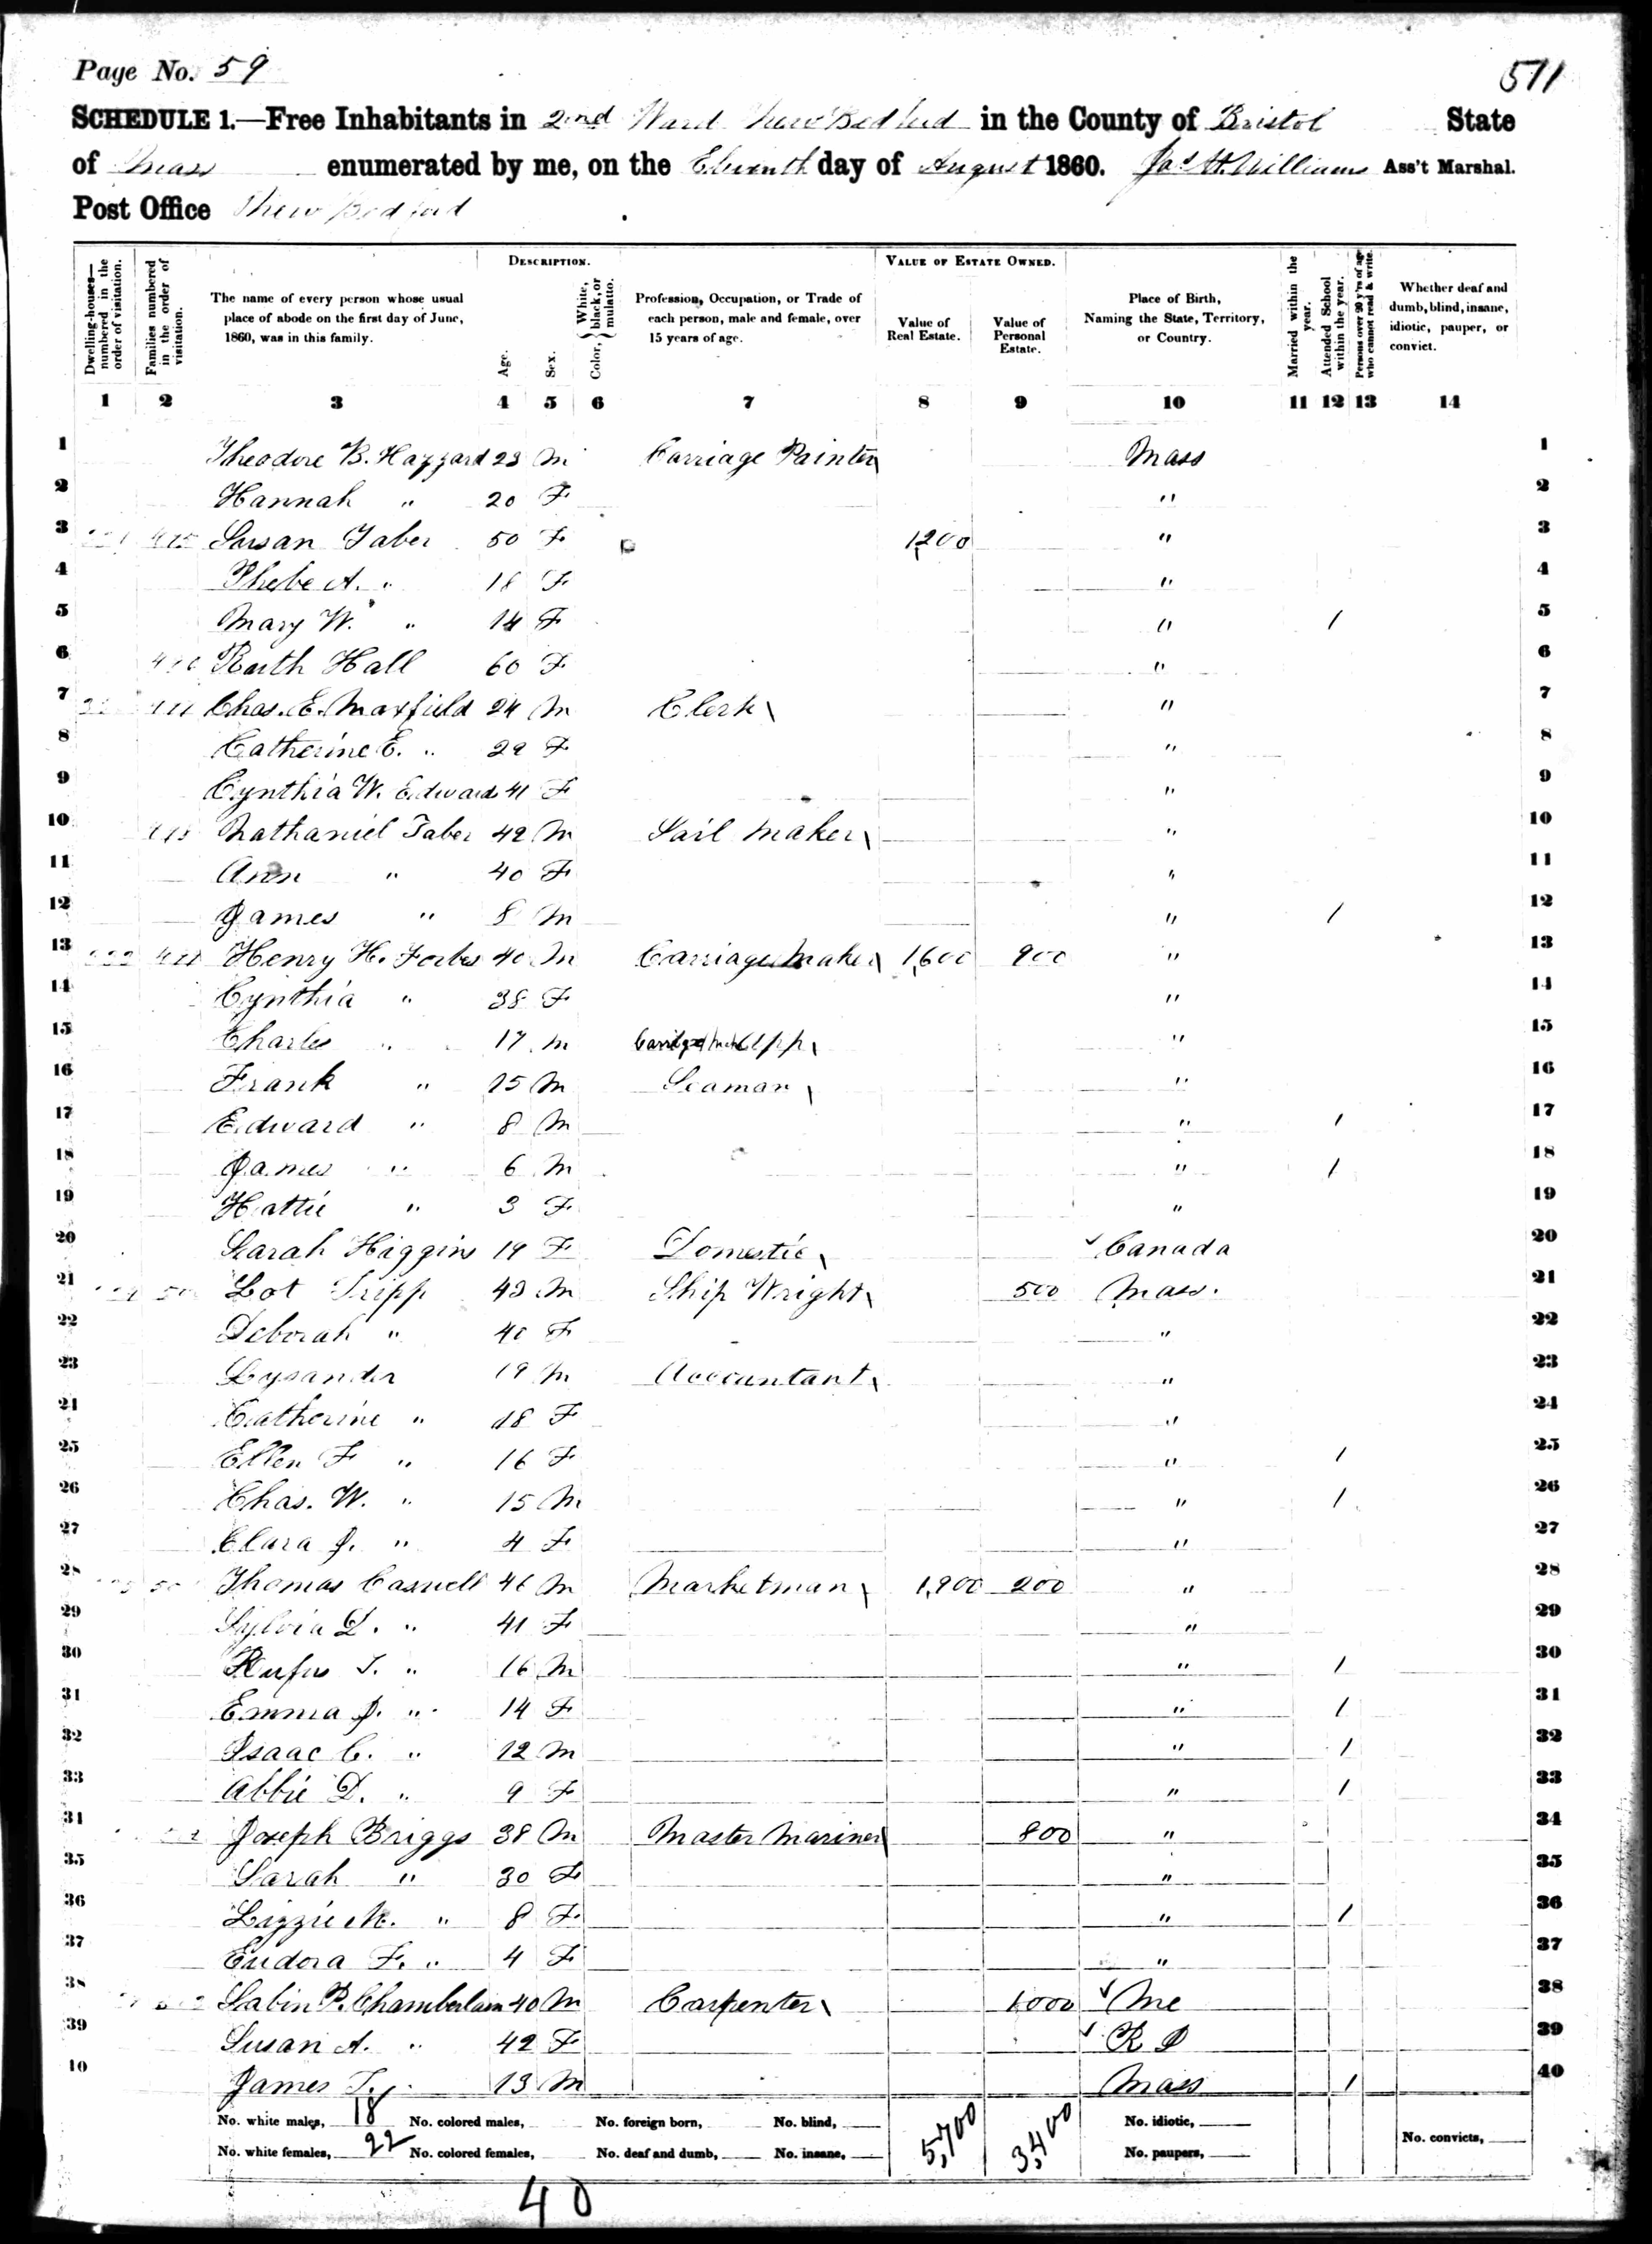 Page No. 59
511
SCHEDULE 1.—Free Inhabitants in 2nd Ward New Bedford in the County of Bristol State
of Mass enumerated by me, on the Eleventh day of August 1860. Jas. H. Williams Ass't Marshal.
Post Office New Bedford
DESCRIPTION. VALUE OF ESTATE OWNED.
Dwelling-houses—numbered in the order of visitation.
Families numbered in the order of visitation.
The name of every person whose usual place of abode on the first day of June, 1860, was in this family.
Age.
Sex.
Color, { White, black, or mulatto.
Profession, Occupation, or Trade of each person, male and female, over 15 years of age.
Value of Real Estate.
Value of Personal Estate.
Place of Birth, Naming the State, Territory, or Country.
Married within the year.
Attended School within the year.
Persons over 20 y'rs of age who cannot read & write.
Whether deaf and dumb, blind, insane, idiotic, pauper, or convict.
1 2 3 4 5 6 7 8 9 10 11 12 13 14
1 Theodore B. Hazzard 23 M Carriage Painter Mass 1
2 Hannah " 20 F " 2
3 Susan Taber 50 F 1,200 " 3
4 Phebe A. " 18 F " 4
5 Mary W. " 14 F " / 5
6 Ruth Hall 60 F " 6
7 Chas. E. Maxfield 24 M Clerk " 7
8 Catherine E. " 22 F " 8
9 Cynthia W. Edwards 41 F " 9
10 Nathaniel Taber 42 M Sail Maker " 10
11 Ann " 40 F " 11
12 James " 8 M " / 12
13 Henry H. Forbes 40 M Carriage Maker 1,600 900 " 13
14 Cynthia " 38 F " 14
15 Charles " 17 M Carriage Mak App " 15
16 Frank " 15 M Seaman " 16
17 Edward " 8 M " / 17
18 James " 6 M " / 18
19 Hattie " 3 F " 19
20 Sarah Higgins 19 F Domestic Canada 20
21 Lot Tripp 43 M Ship Wright 500 Mass. 21
22 Deborah " 40 F " 22
23 Lysander 19 M Accountant " 23
24 Catherine " 18 F " 24
25 Ellen F " 16 F " / 25
26 Chas. W. " 15 M " / 26
27 Clara J. " 4 F " 27
28 Thomas Caswell 46 M Marketman 1,900 200 " 28
29 Sylvia D. " 41 F " 29
30 Rufus T. " 16 M " / 30
31 Emma J. " 14 F " / 31
32 Isaac C. " 12 M " / 32
33 Abbie D. " 9 F " / 33
34 Joseph Briggs 38 M Master Mariner 800 " 34
35 Sarah " 30 F " 35
36 Lizzie M. " 8 F " / 36
37 Eudora F. " 4 F " 37
38 Sabin P. Chamberlain 40 M Carpenter 1,000 Me 38
39 Susan A. " 42 F R I 39
40 James T. " 13 M Mass / 40
No. white males, 18 No. colored males, No. foreign born, No. blind, 5,700 3,400 No. idiotic,
No. white females, 22 No. colored females, No. deaf and dumb, No. insane, No. paupers, No. convicts,
40